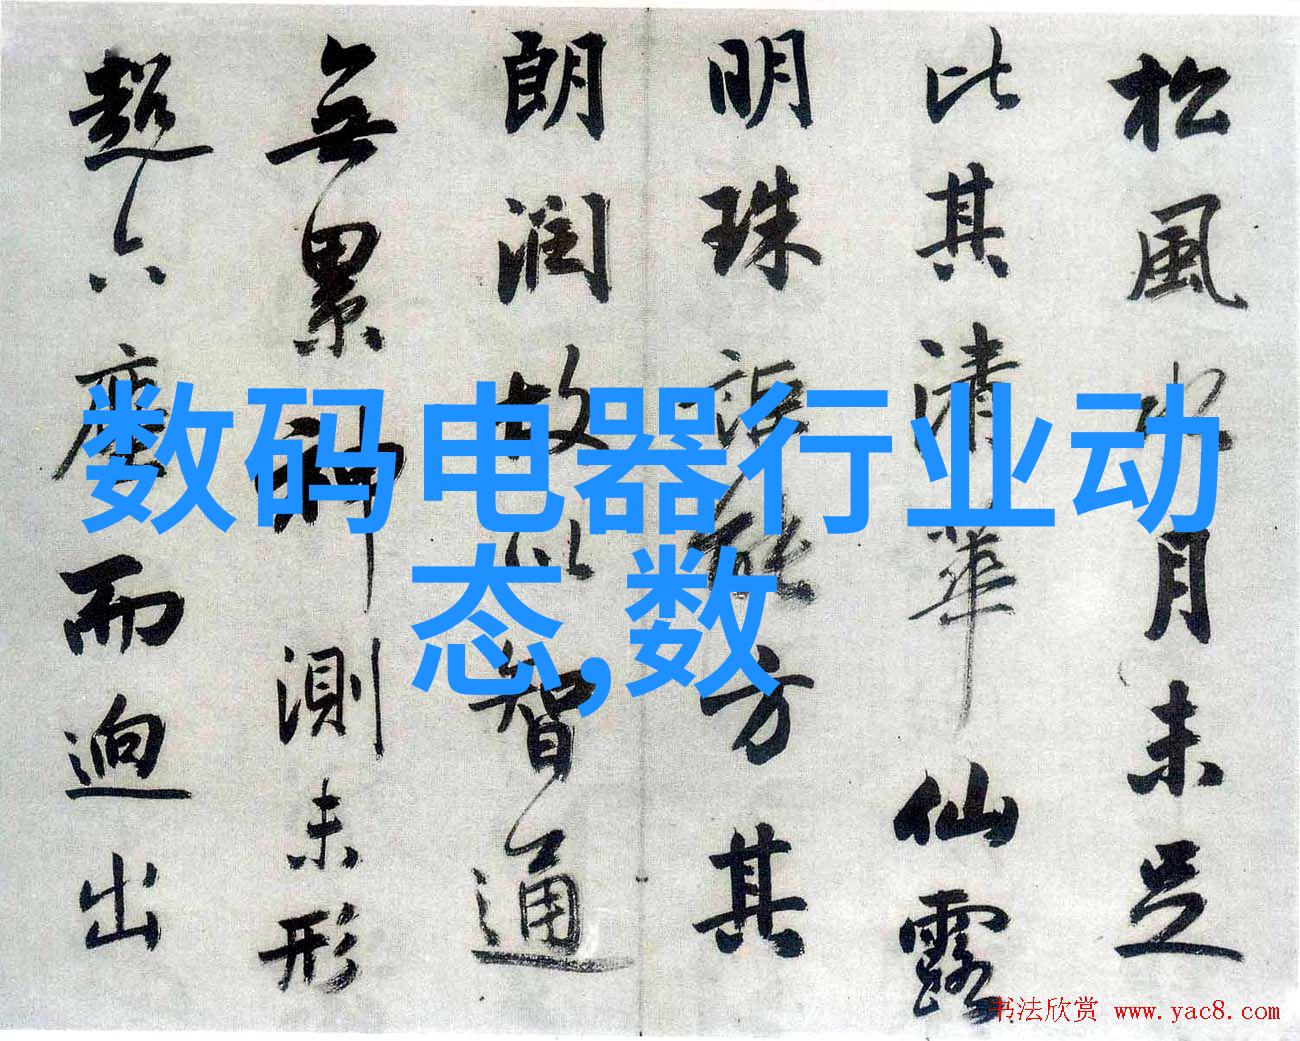 松風水月未足
比其清華仙露
明珠詎能方其
朗潤故以智通
無累神測未形
超六塵而迥出
数码电器行业动
态,数
书法欣赏 www.yac8.com